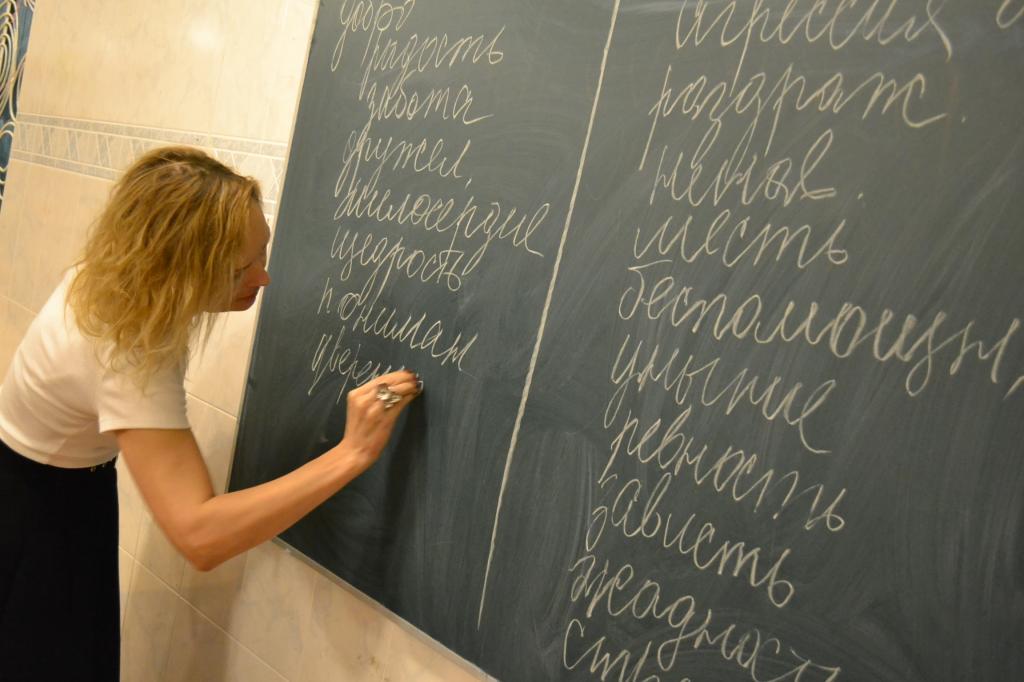 добро
радость
забота
дружел.
милосердие
щедрость
пониман
уверен
агрессия
раздраж.
ненав.
месть
беспомощн,
уныние
ревность
зависть
жадность